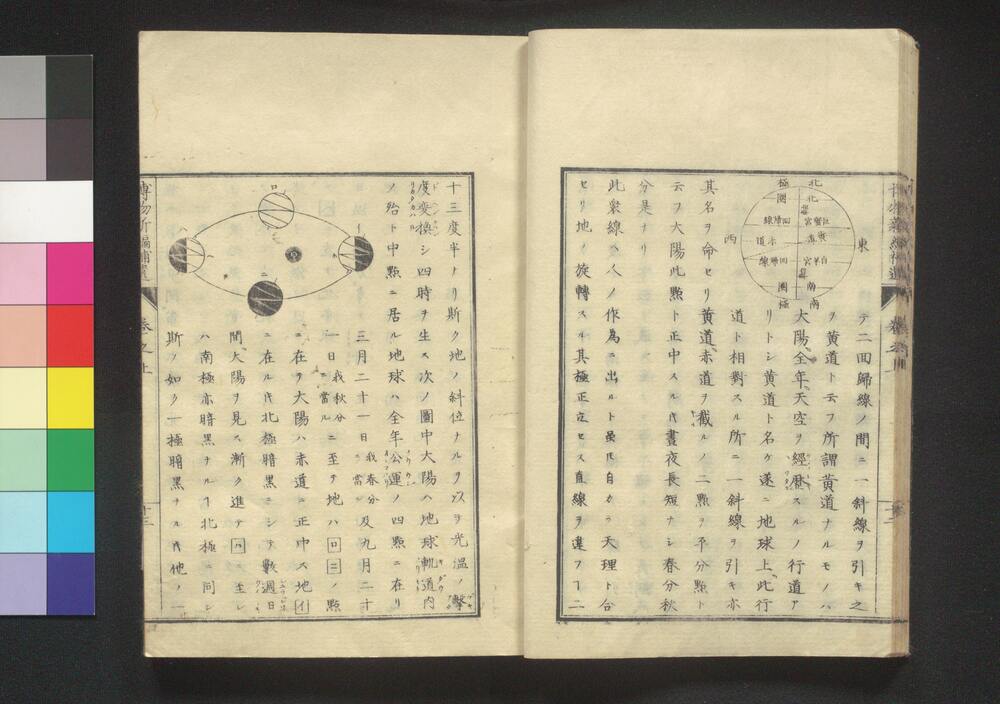 テ二回歸線ノ間ニ一斜線ヲ引キ之
ヲ黄道ト云フ所謂黄道ナルモノハ
大陽全年天空ヲ經歴スルノ行道ア
リトシ黄道ト名ケ遂ニ地球上此行
道ト相對スル所ニ一斜線ヲ引キ亦
其名ヲ命セリ黄道赤道ヲ截ルノ二點ヲ平分點ト
云フ大陽此點ト正中スル𪜈晝夜長短ナシ春分秋
分是ナリ
此衆線ハ人ノ作為ニ出ルト虽𪜈自カラ天理ト合
セリ地ノ旋轉スル其極正立セス直線ヲ違フヿ二
北極
北圏
東
西
赤道
南圏
南極
十三度半ナリ斯ク地ノ斜位ナルヲ以テ光温ノ
度變換シ四時ヲ生ス次ノ圖中大陽ハ地球軌道内
ノ殆ト中點ニ居ル地球ハ全年公運ノ四點ニ在リ
三月二十一日我春分ニ當ル及九月二十
一日我秋分ニ當ルニ至テ地ハロニノ點
ニ在テ大陽ハ赤道ニ正中ス地イ
ニ在ル𪜈北極暗黒ニシテ數週日
間大陽ヲ見ス漸ク進テハニ至レ
ハ南極亦暗黒ナルヿ北極ニ同シ
斯ノ如ク一極暗黒ナル𪜈他ノ一
イ
ロ
ハ
ニ
博物新編補遺
巻之上
十三